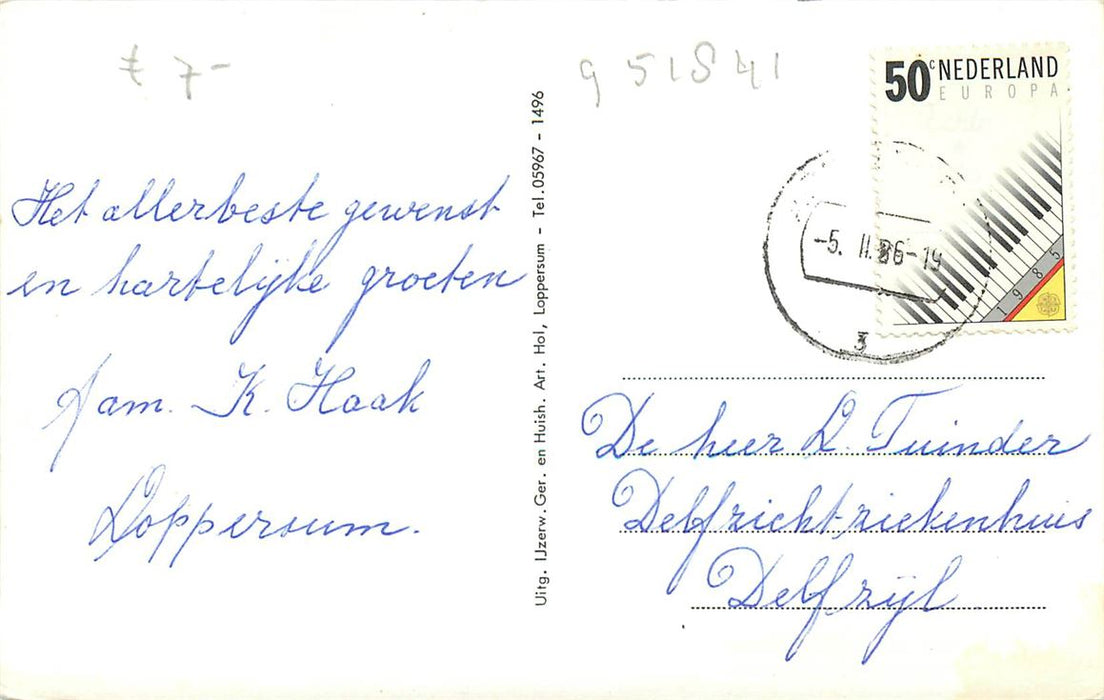 € 7-
Het allerbeste gewenst
en hartelijke groeten
fam. K. Haak
Loppersum.
Uitg. IJzerw. Ger. en Huish. Art. Hol, Loppersum - Tel. 05967 - 1496
951841
50c NEDERLAND
EUROPA
1985
-5. II. 86-19
3
De heer L. Tuinder
Delfzicht-ziekenhuis
Delfzijl